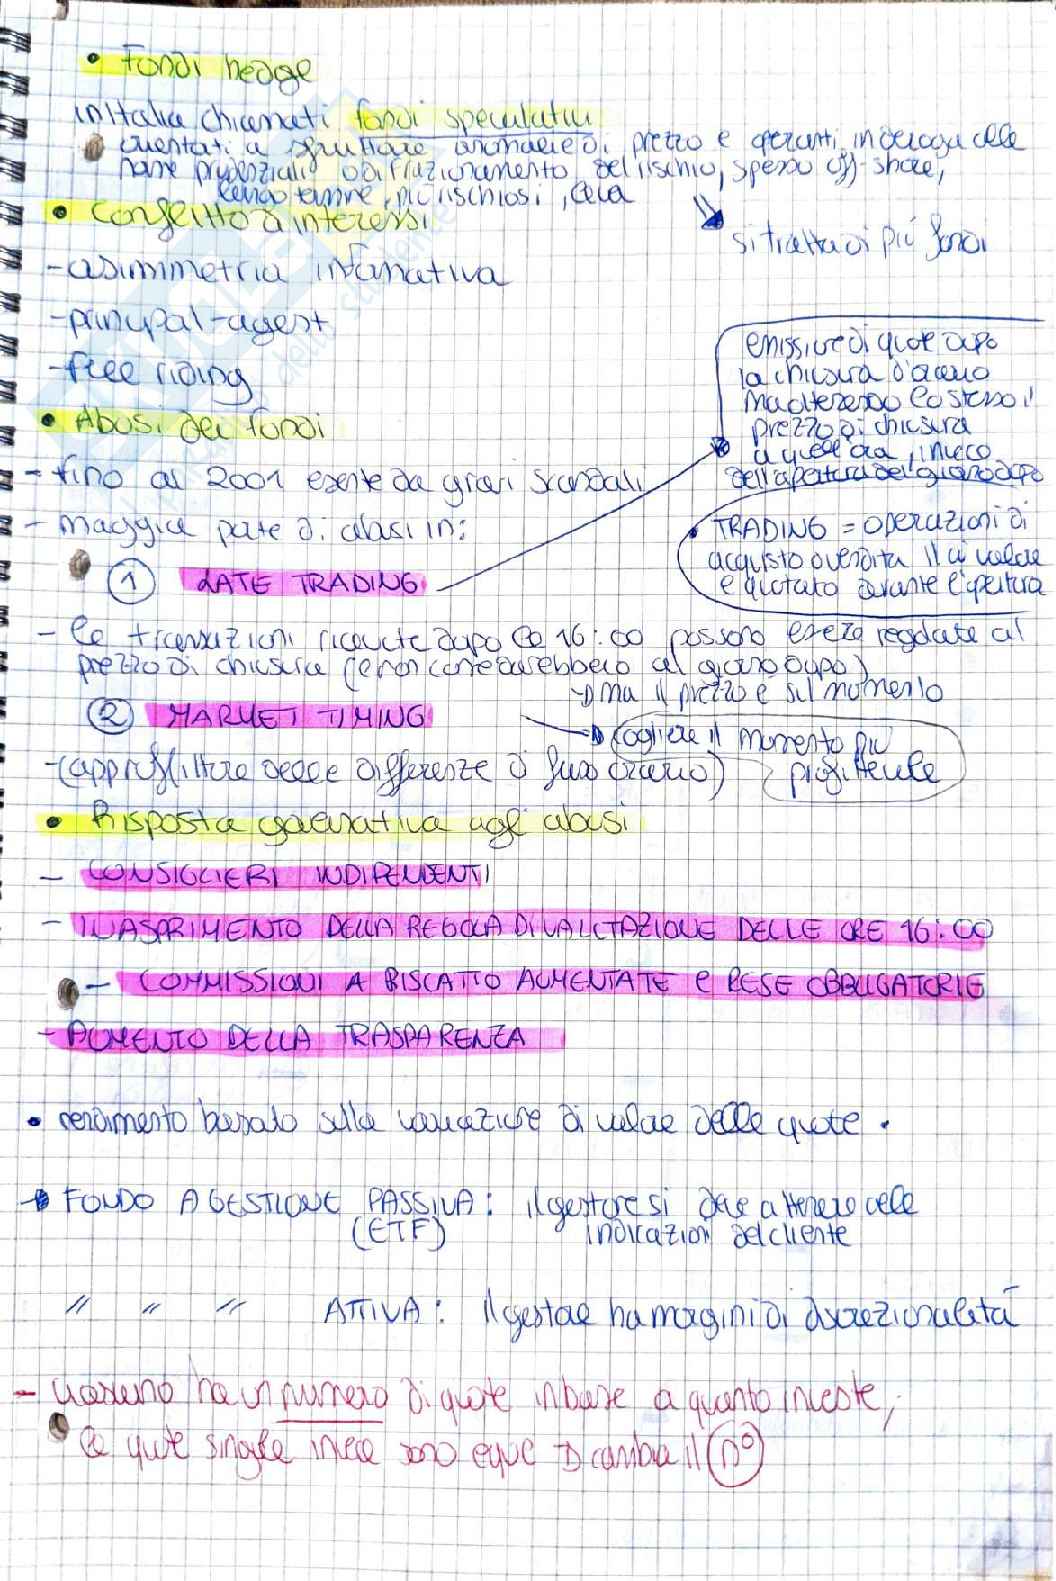 • Fondi hedge
in Italia chiamati fondi speculativi
orientati a sfruttare anomalie di prezzo e operanti in deroga alle
norme prudenziali o di frazionamento del rischio, spesso off-shore,
lungo termine, più rischiosi,
si tratta di più fondi
• Conflitto d'interessi
- asimmetria informativa
- principal-agent
- free riding
• Abusi dei fondi
- fino al 2001 esente da gravi scandali
- maggior parte di abusi in:
① LATE TRADING
emissione di quote dopo
la chiusura d'
ma ottenendo lo stesso il
prezzo di chiusura
a quell'ora, invece
dell'apertura del giorno dopo
• TRADING = operazioni di
acquisto o vendita il cui valore
è quotato durante l'apertura
- le transazioni ricevute dopo le 16:00 possono essere regolate al
prezzo di chiusura (e non come sarebbero al giorno dopo)
→ ma il prezzo è sul momento
② MARKET TIMING
→ cogliere il momento più
profittevole
- (approfittare delle differenze di fuso orario)
• Risposta governativa agli abusi
- CONSIGLIERI INDIPENDENTI
- INASPRIMENTO DELLA REGOLA DI VALUTAZIONE DELLE ORE 16:00
- COMMISSIONI A RISCATTO AUMENTATE e RESE OBBLIGATORIE
- AUMENTO DELLA TRASPARENZA
• rendimento basato sulla variazione di valore delle quote.
→ FONDO A GESTIONE PASSIVA: il gestore si deve attenere alle
(ETF) indicazioni del cliente
" " " ATTIVA: il gestore ha margini di discrezionalità
- ciascuno ha un numero di quote in base a quanto investe,
le quote singole invece sono eque → cambia il n°